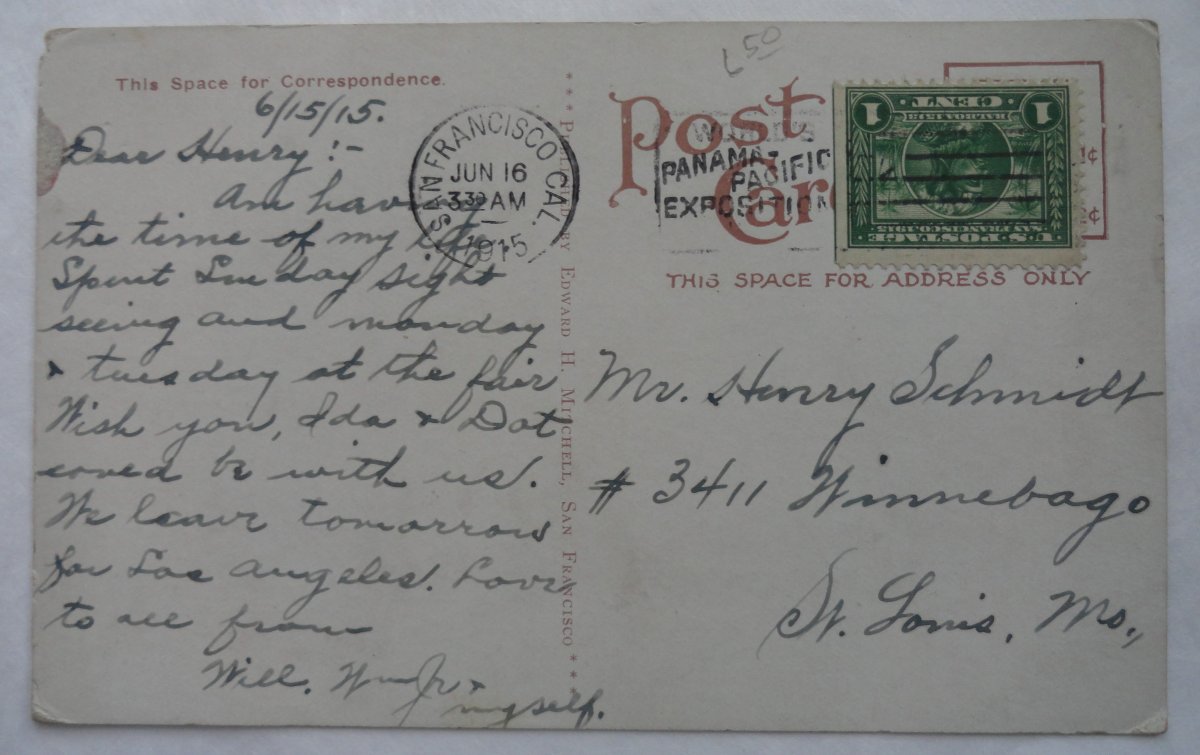 This Space for Correspondence.
6/15/15.
Dear Henry!-
Am having
the time of my life
Spent Sunday sight
seeing and monday
& tuesday at the fair
Wish you, Ida & Dot
could be with us.
We leave tomorrow
for Los Angeles. Love
to all from
Will. Wm Jr &
myself.
SAN FRANCISCO CAL.
JUN 16
3 30 AM
1915
* * * PUBLISHED BY EDWARD H. MITCHELL, SAN FRANCISCO * * *
6 50
Post Card
WORLD'S
PANAMA-
PACIFIC
EXPOSITION
1 CENT 1
BALBOA 1513
SAN FRANCISCO 1915
U.S. POSTAGE
1¢
¢
THIS SPACE FOR ADDRESS ONLY
Mr. Henry Schmidt
# 3411 Winnebago
St. Louis, Mo.,